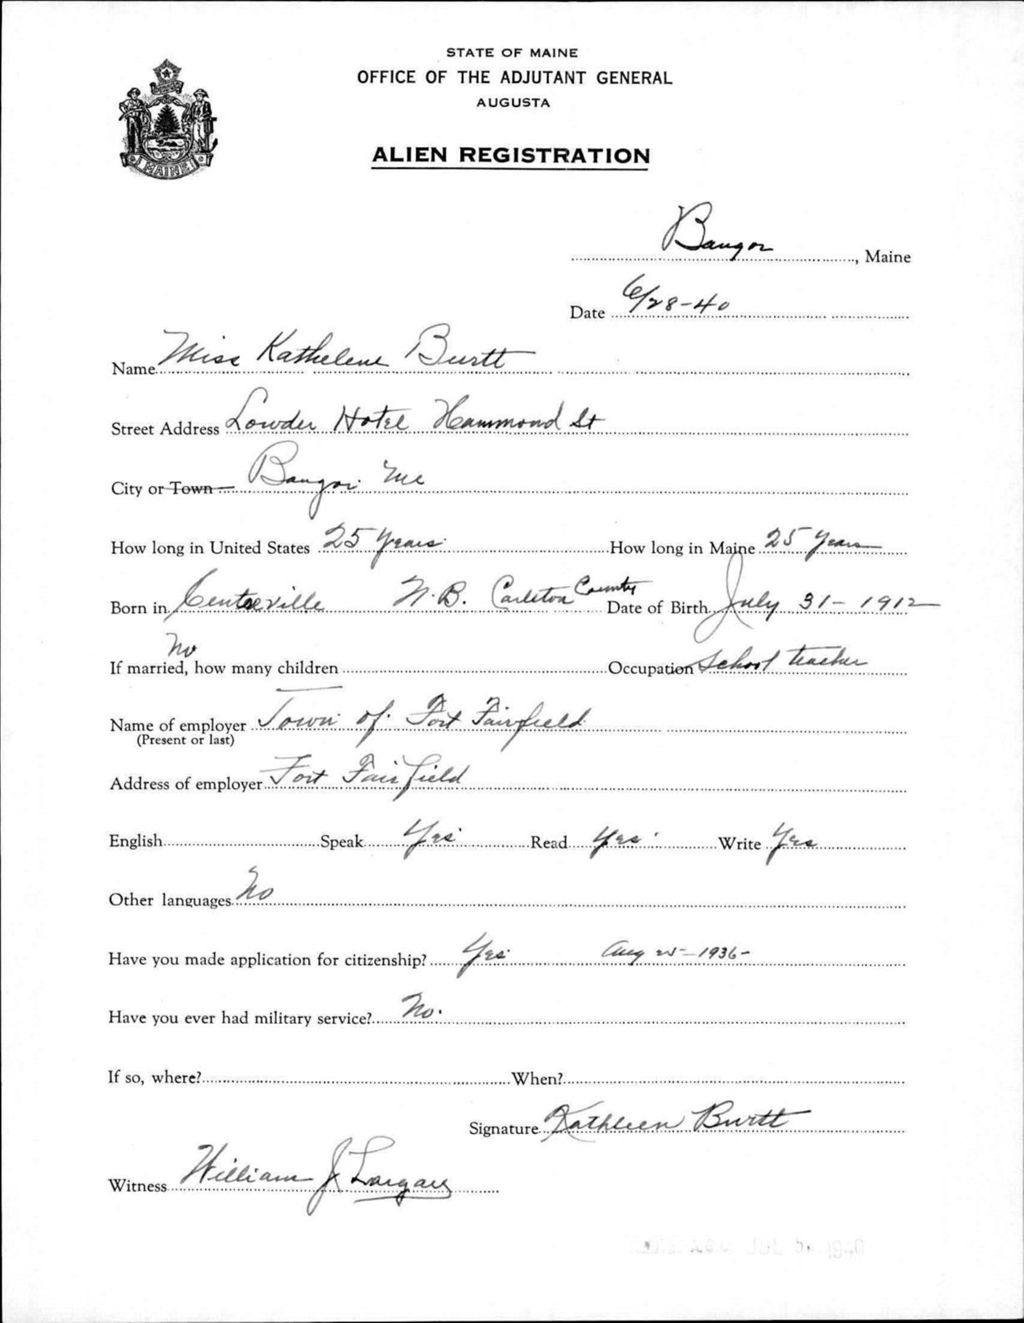 STATE OF MAINE
OFFICE OF THE ADJUTANT GENERAL
AUGUSTA
ALIEN REGISTRATION
MAINE
Bangor, Maine
Date 6/28-40
Name Miss Kathelene Burtt
Street Address Lowder Hotel Hammond St
City or Town Bangor Me
How long in United States 25 Years How long in Maine 25 Years
Born in Centreville N.B. Carleton County Date of Birth July 31-1912
No
If married, how many children Occupation School teacher
Name of employer Town of Fort Fairfield
(Present or last)
Address of employer Fort Fairfield
English Speak Yes Read Yes Write Yes
Other languages No
Have you made application for citizenship? Yes Aug 25-1936-
Have you ever had military service? No.
If so, where? When?
Signature Kathleen Burtt
Witness William J